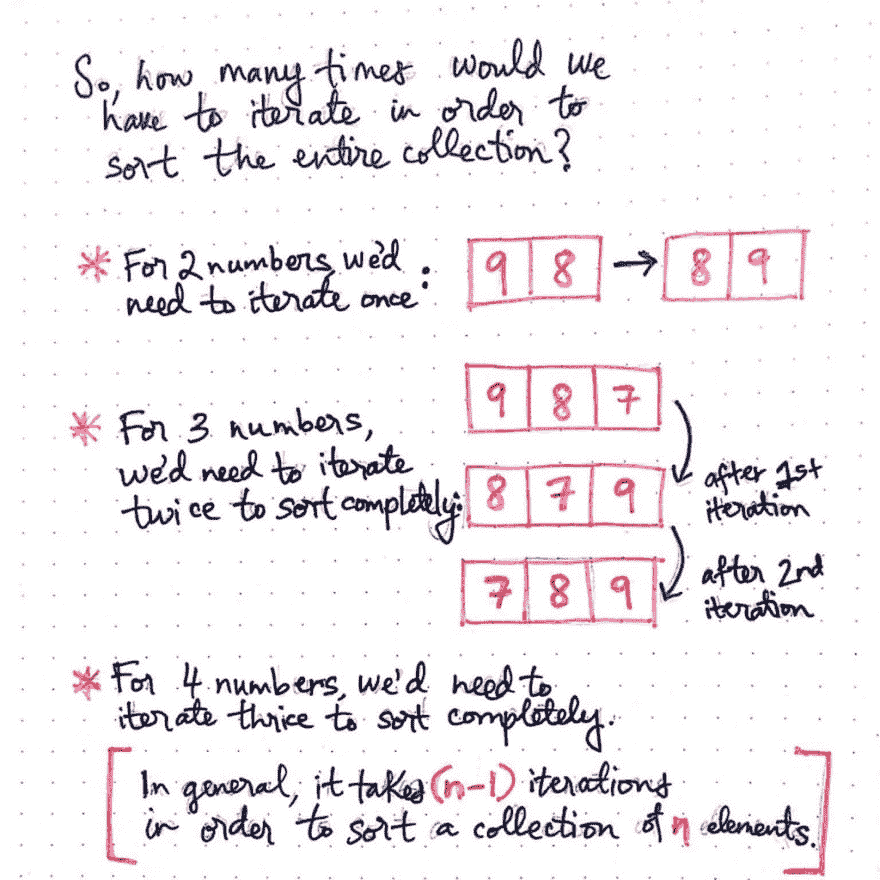 So, how many times would we
have to iterate in order to
sort the entire collection?
* For 2 numbers, we'd
need to iterate once:
9 8 → 8 9
* For 3 numbers,
we'd need to iterate
twice to sort completely:
9 8 7
8 7 9
after 1st
iteration
7 8 9
after 2nd
iteration
* For 4 numbers, we'd need to
iterate thrice to sort completely.
[In general, it takes (n-1) iterations
in order to sort a collection of n elements.]